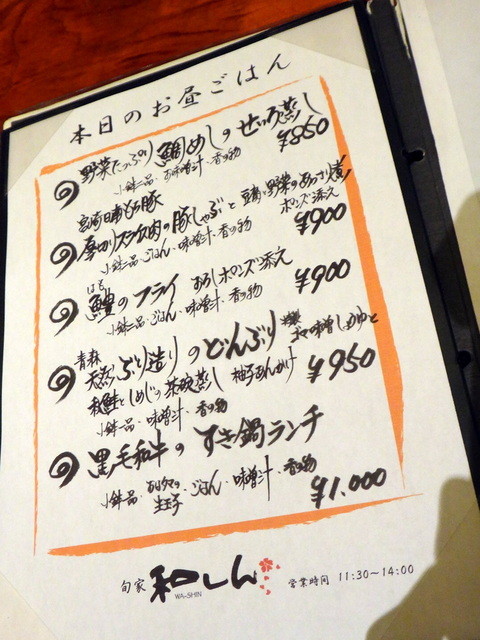 本日のお昼ごはん
野菜たっぷり 鯛めしのせいろ蒸し
小鉢一品・お味噌汁・香の物
¥850
宮崎日南もち豚
厚切りスライス肉の豚しゃぶと豆腐と野菜のあっさり煮
小鉢一品・ごはん・味噌汁・香の物
ポンズ添え
¥900
はも
鱧のフライ おろしポンズ添え
小鉢一品・ごはん・味噌汁・香の物
¥900
青森
天然ぶり造りのどんぶり
味噌しょうゆと
秋鮭としめじの茶碗蒸し 柚子あんかけ
小鉢一品・味噌汁・香の物
¥950
黒毛和牛のすき鍋ランチ
小鉢一品・生玉子・ごはん・味噌汁・香の物
¥1.000
旬家 和しん
WA-SHIN
営業時間 11:30~14:00